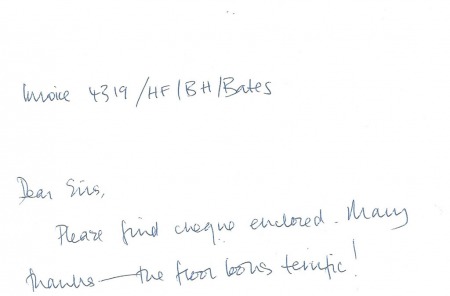 Invoice 4319/HF/BH/Bates
Dear Sirs,
Please find cheque enclosed. Many
thanks — the floor looks terrific!